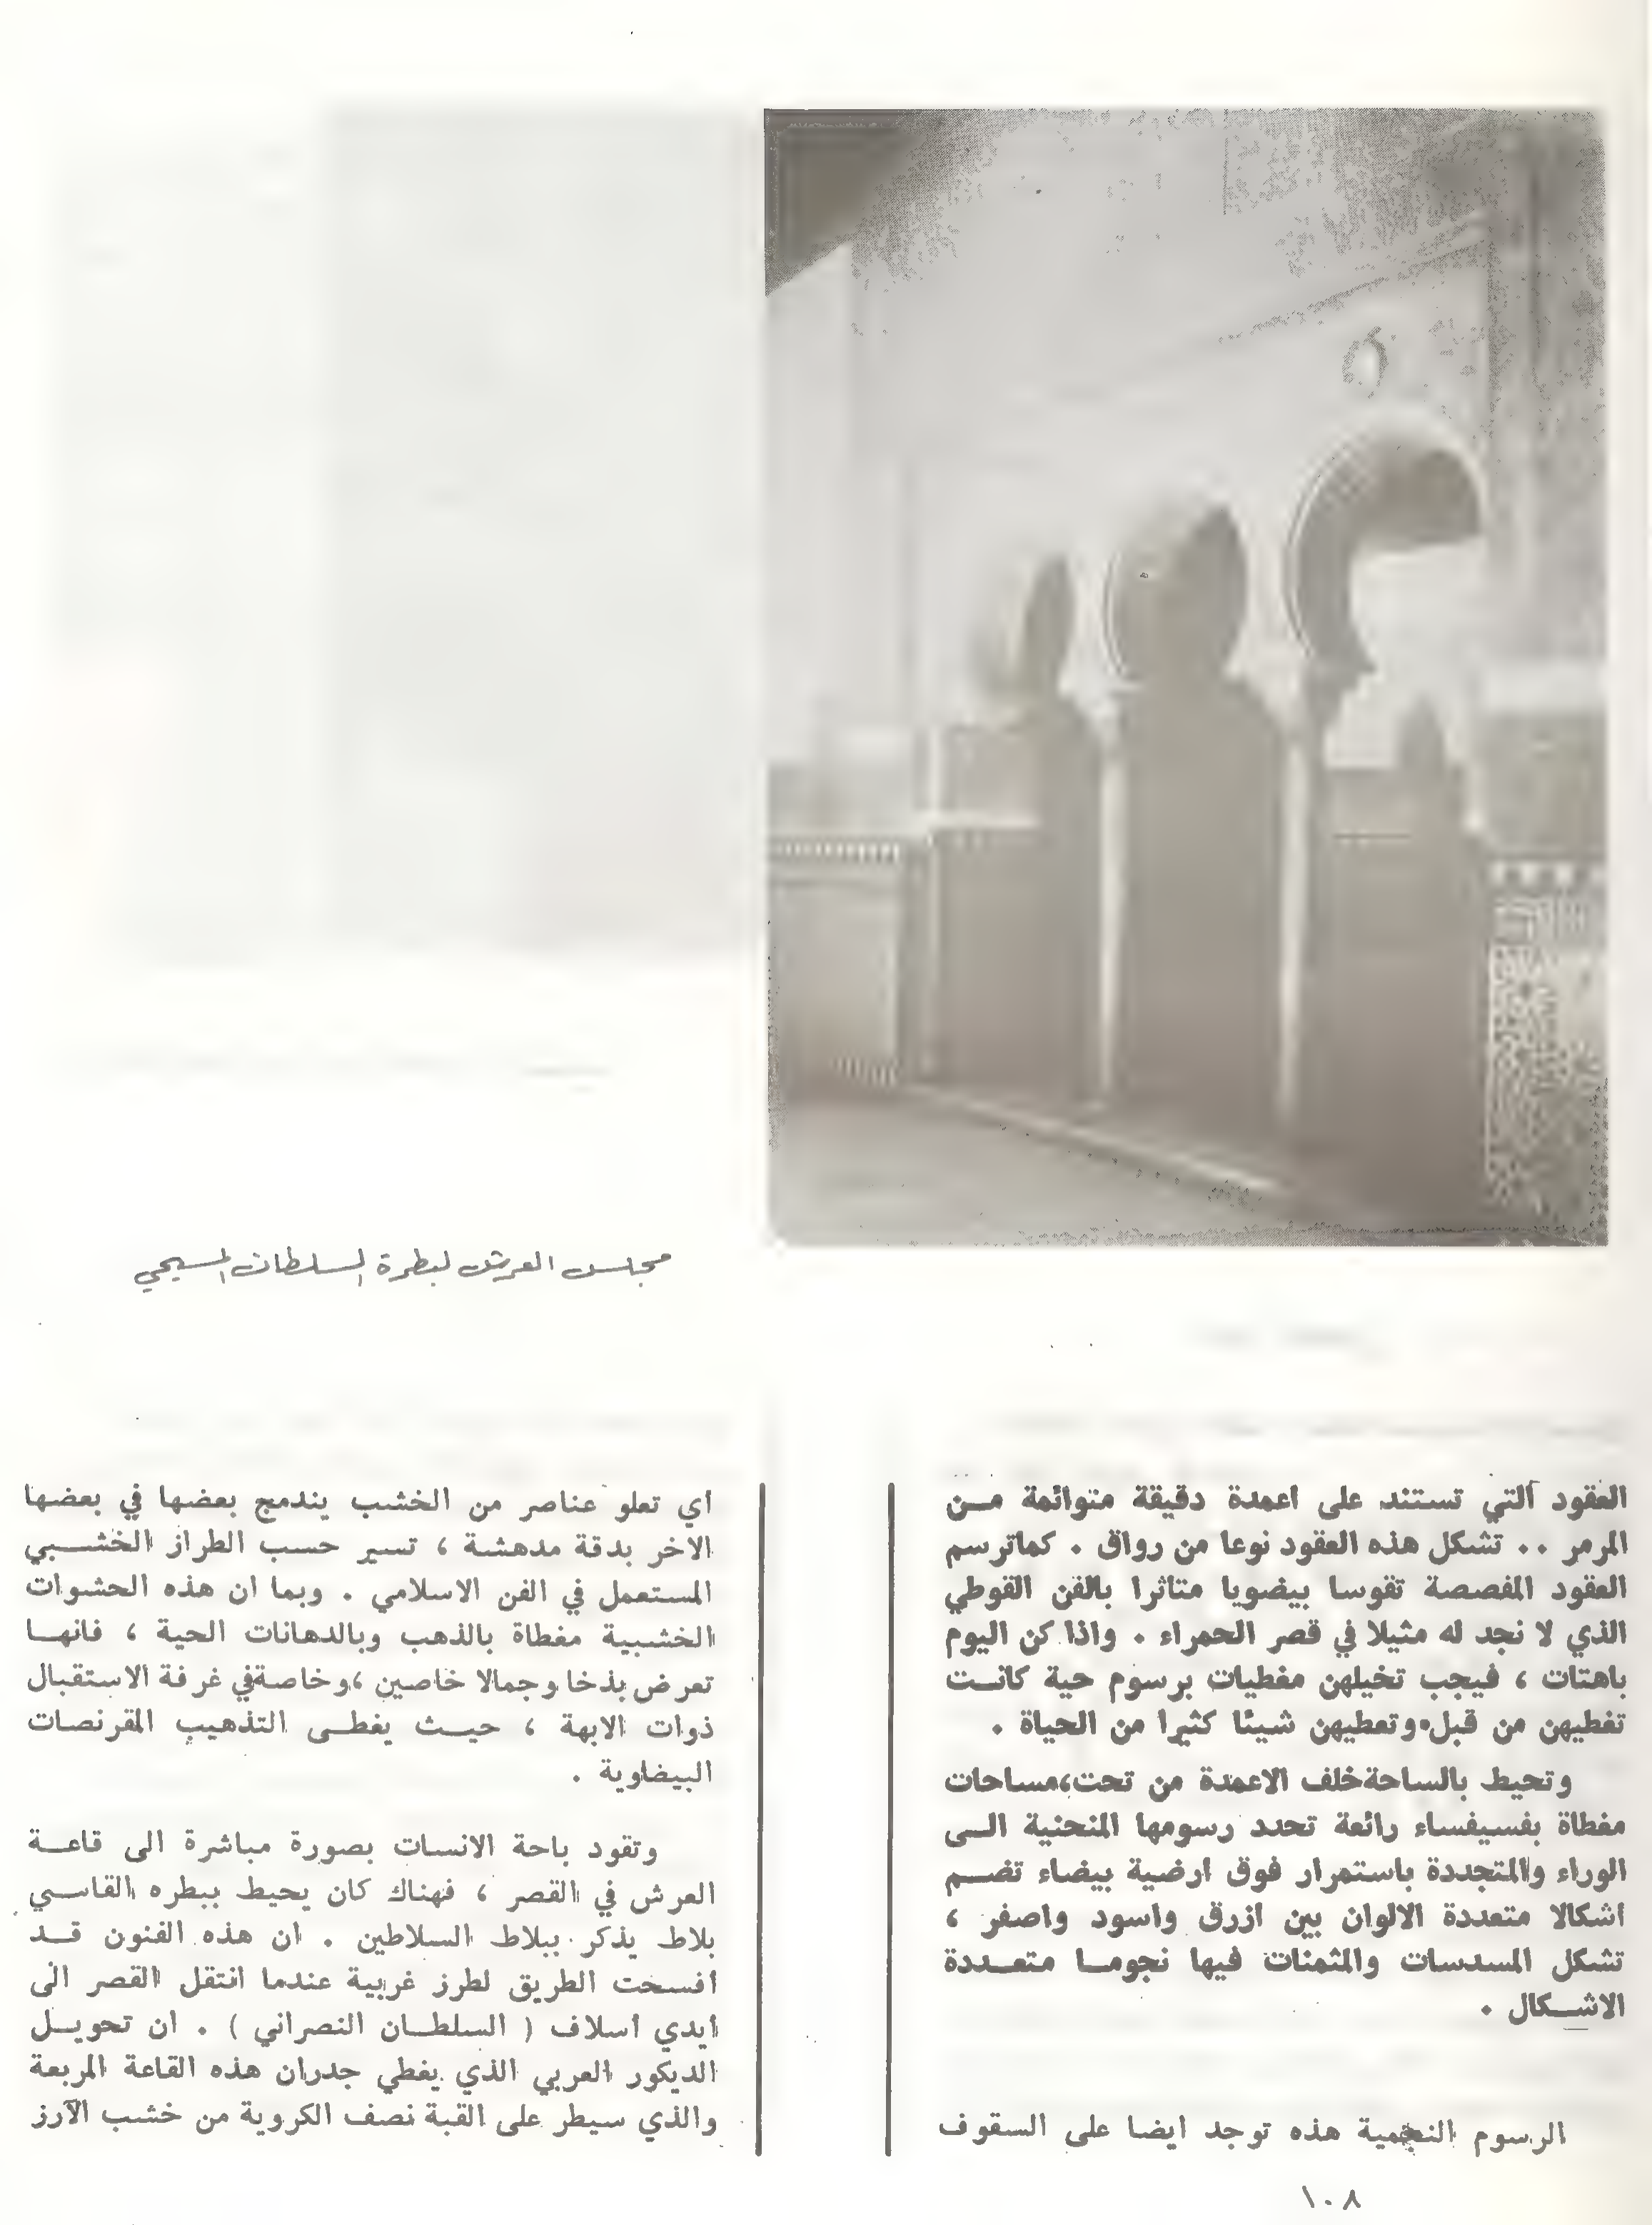 مجلس العرش لبطرة السلطان المسيحي
العقود التي تستند على اعمدة دقيقة متوائمة مـن
المرمر .. تشكل هذه العقود نوعا من رواق . كماترسم
العقود المفصصة تقوسا بيضويا متاثرا بالفن القوطي
الذي لا نجد له مثيلا في قصر الحمراء . واذا كن اليوم
باهتات ، فيجب تخيلهن مغطيات برسوم حية كانـت
تغطيهن من قبل وتعطيهن شيئا كثيرا من الحياة .
وتحيط بالساحة خلف الاعمدة من تحت،مساحات
مغطاة بفسيفساء رائعة تحدد رسومها المنحنية الـى
الوراء والمتجددة باستمرار فوق ارضية بيضاء تضـم
اشكالا متعددة الالوان بين ازرق واسود واصفر ،
تشكل المسدسات والمثمنات فيها نجومـا متعـددة
الاشـكال .
الرسوم النجمية هذه توجد ايضا على السقوف
اي تعلو عناصر من الخشب يندمج بعضها في بعضها
الاخر بدقة مدهشة ، تسير حسب الطراز الخشـبي
المستعمل في الفن الاسلامي . وبما ان هذه الحشوات
الخشبية مغطاة بالذهب وبالدهانات الحية ، فانهـا
تعرض بذخا وجمالا خاصين ،وخاصةفي غرفة الاستقبال
ذوات الابهة ، حيـث يغطـى التذهيب المقرنصات
البيضاوية .
وتقود باحة الانسات بصورة مباشرة الى قاعـة
العرش في القصر ، فهناك كان يحيط ببطره القاسـي
بلاط يذكر ببلاط السلاطين . ان هذه الفنون قـد
افسحت الطريق لطرز غربية عندما انتقل القصر الى
ايدي اسلاف ( السلطـان النصراني ) . ان تحويـل
الديكور العربي الذي يغطي جدران هذه القاعة المربعة
والذي سيطر على القبة نصف الكروية من خشب الآرز
١٠٨